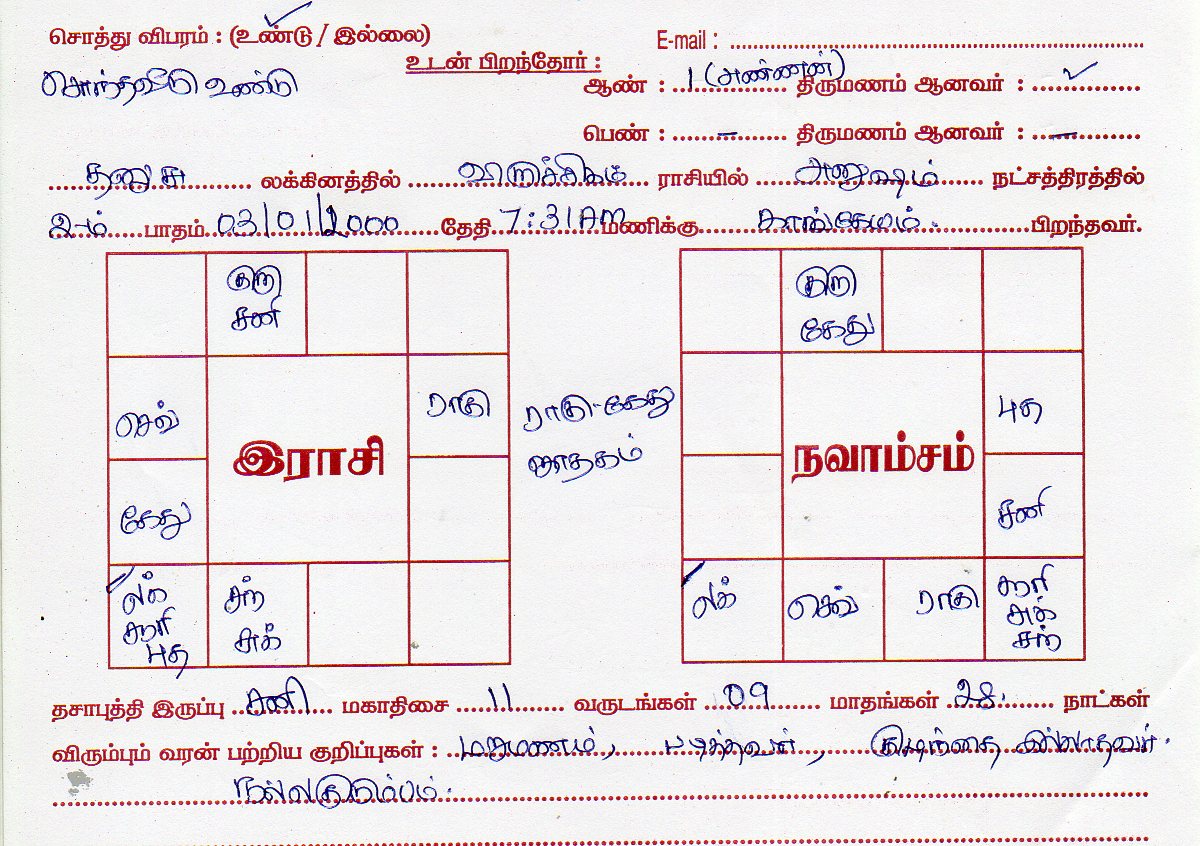 சொத்து விபரம் : (உண்டு / இல்லை)
E-mail :
உடன் பிறந்தோர் :
சொந்தவீடு உண்டு
ஆண் : 1 (அண்ணன்) திருமணம் ஆனவர் : ✓
பெண் : – திருமணம் ஆனவர் : –
தனுசு லக்கினத்தில் விருச்சிகம் ராசியில் அனுஷம் நட்சத்திரத்தில்
2-ம் பாதம் 03/01/2000 தேதி 7:31 AM மணிக்கு காங்கேயம். பிறந்தவர்.
குரு
சனி
செவ்
ராகு
கேது
லக்
சூரி
புத
சந்
சுக்
இராசி
ராகு-கேது
ஜாதகம்
குரு
கேது
புத
சனி
லக்
செவ்
ராகு
சூரி
சுக்
சந்
நவாம்சம்
தசாபுத்தி இருப்பு சனி மகாதிசை 11 வருடங்கள் 09 மாதங்கள் 28. நாட்கள்
விரும்பும் வரன் பற்றிய குறிப்புகள் : மறுமணம், படித்தவள், குழந்தை இல்லாதவர்.
நல்லகுடும்பம்.